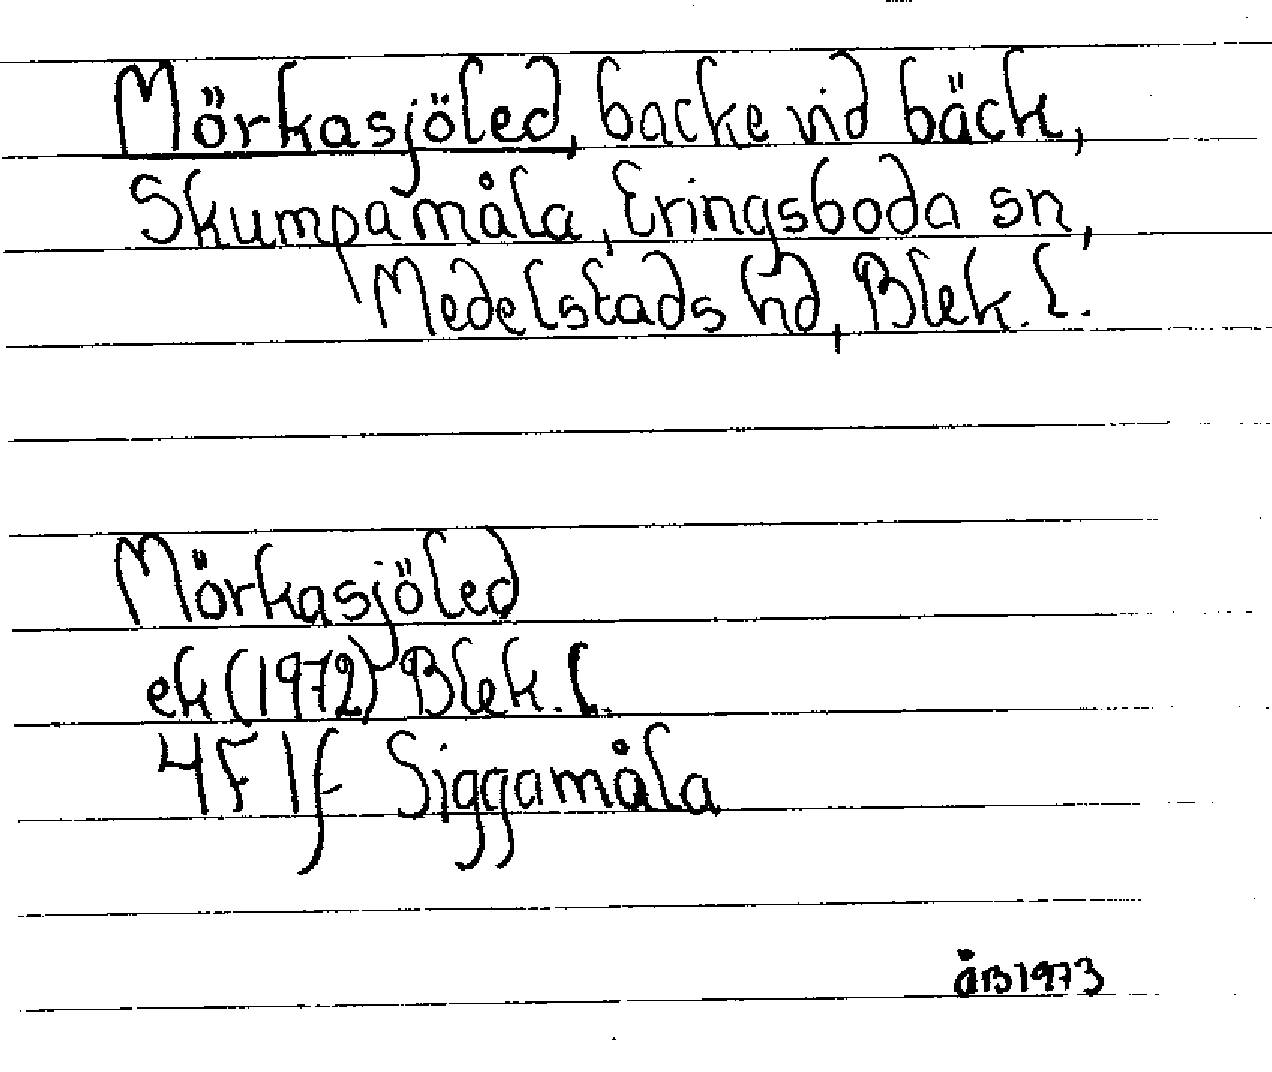 Mörkasjöled, backe vid bäck,
Skumpamåla, Eringsboda sn,
Medelstads hd, Blek. l.
Mörkasjöled
ek (1972) Blek. l.
4F 1f Siggamåla
åB1973